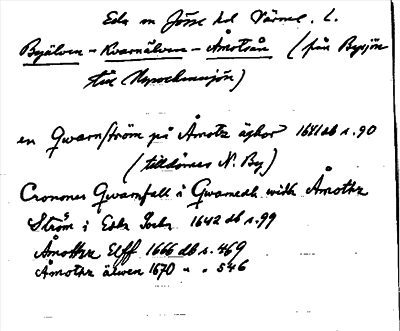 Eda sn Jösse hd Värml. L.
Byälven - Kvarnälven - Åmotsån (från Bysjön
till Hugn
en Qwarnström på Åmotz äghor 1641 db s. 90
(tilldömes N. By)
Cronones Qwarnfall i Qwarnedh widh Åmothz
Ström i Eda Sochn 1642 db s. 99
Åmothz Elff 1666 db s. 469
Åmothz älwen 1670 " " 546